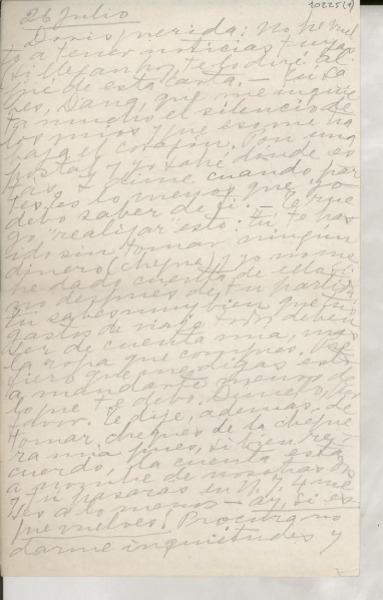 10225(1)
26 Julio
Doris querida: No he vuel
to a tener noticias tuyas
(si llegan hoy te lo diré al
pie de esta carta. - Tu sa
bes, Dana, que me inquie
ta mucho el silencio de
los míos y que eso me ha
baja el corazón. Pon una
postal y yo sabré donde es
tás. Y dime cuando par
tes, es lo menos que yo
debo saber de ti. - Te rue
go "realizar" esto: tú te has
ido sin tomar ningún
dinero (cheque) y yo no me
he dado cuenta de ello si
no después de tu partida
Tú sabes muy bien que tus
gastos de viaje todos deben
ser de cuenta mía, mas
la ropa que compres. Pre
fiero que me digas esto
a mandarte menos de
lo que te debo. Dímelo, por
favor. Te dije, además, de
tomar cheques de la cheque
ra mía pues, si bien re-
cuerdo, la cuenta está
a nombre de nosotras dos
Y tú pasarás en N. Y. 4 me
ses a lo menos - ay, si es
que vuelves. Procura no
darme inquietudes y